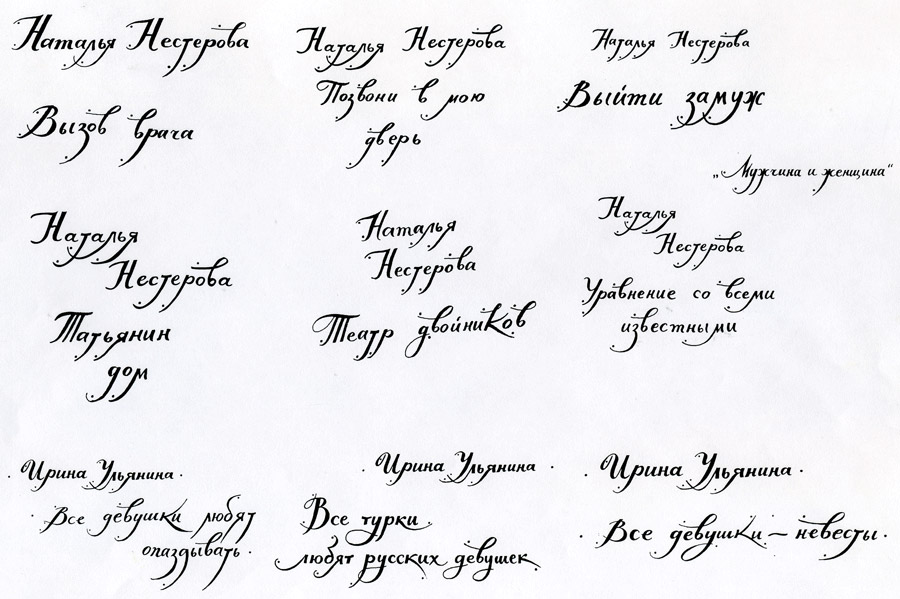 Наталья Нестерова
Вызов врача
Наталья Нестерова
Позвони в мою
дверь
Наталья Нестерова
Выйти замуж
„Мужчина и женщина“
Наталья
Нестерова
Татьянин
дом
Наталья
Нестерова
Театр двойников
Наталья
Нестерова
Уравнение со всеми
известными
· Ирина Ульянина ·
· Все девушки любят
опаздывать ·
· Ирина Ульянина ·
Все турки
любят русских девушек
· Ирина Ульянина ·
· Все девушки – невесты ·